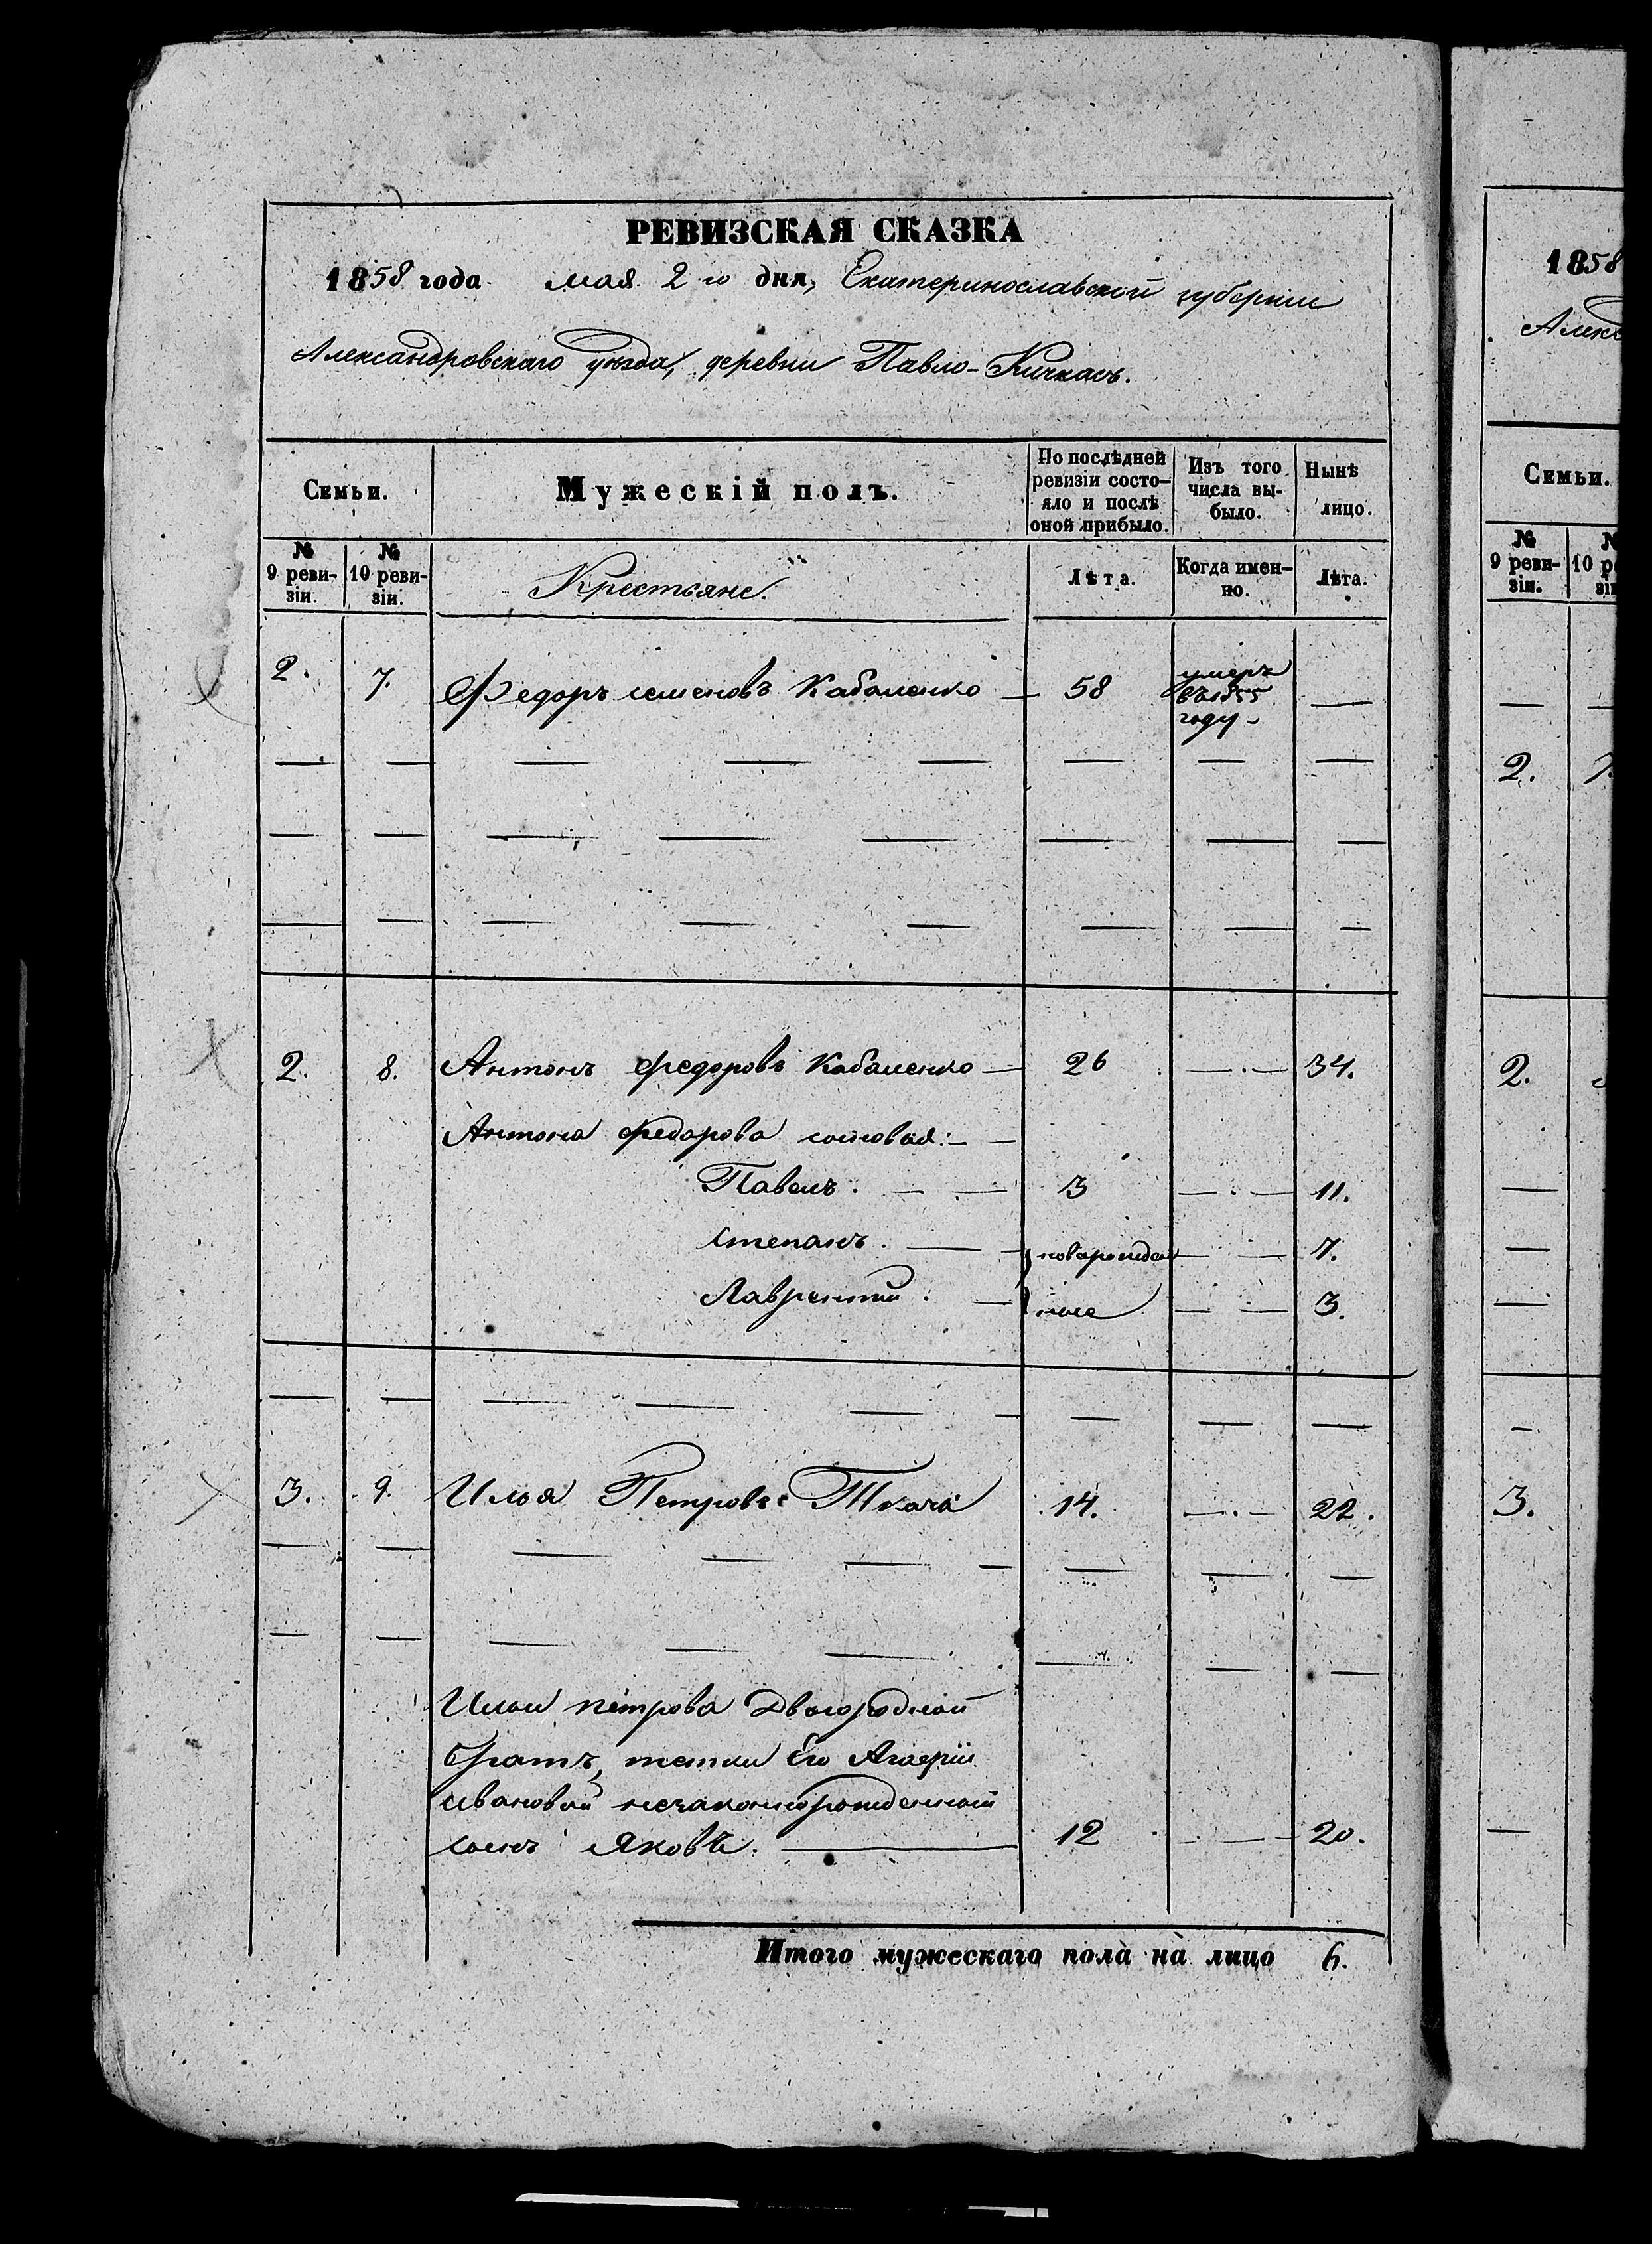 РЕВИЗСКАЯ СКАЗКА
1858 года мая 2 го дня, Екатеринославской губернии
Александровскаго уѣзда, деревни Павло-Кичкасъ.
Семьи. Мужескій полъ. По послѣдней ревизіи состо-яло и послѣ оной прибыло. Изъ того числа вы-было. Нынѣ лицо.
№ 9 реви-зіи. № 10 реви-зіи. Крестьяне. Лѣта. Когда имен-но. Лѣта.
2. 7. Федоръ семеновъ Кабаненко — 58 умеръ въ 1855 году —
2. 8. Антонъ федоровъ Кабаненко — 26 — 34.
Антона федорова сыновья: —
Павелъ. 3 — 11.
степанъ. новорожден — 7.
Лаврентий. ные — 3.
3. 9. Илья Петровъ Ткачъ 14. — 22.
Ильи петрова Двоюродной
братъ, тетки Его
ивановой незаконнорожденной
сынъ Яковъ. 12 — 20.
Итого мужескаго пола на лицо 6.
1858
Алекс
Семьи.
№ 9 реви-зіи.
2.
2.
3.